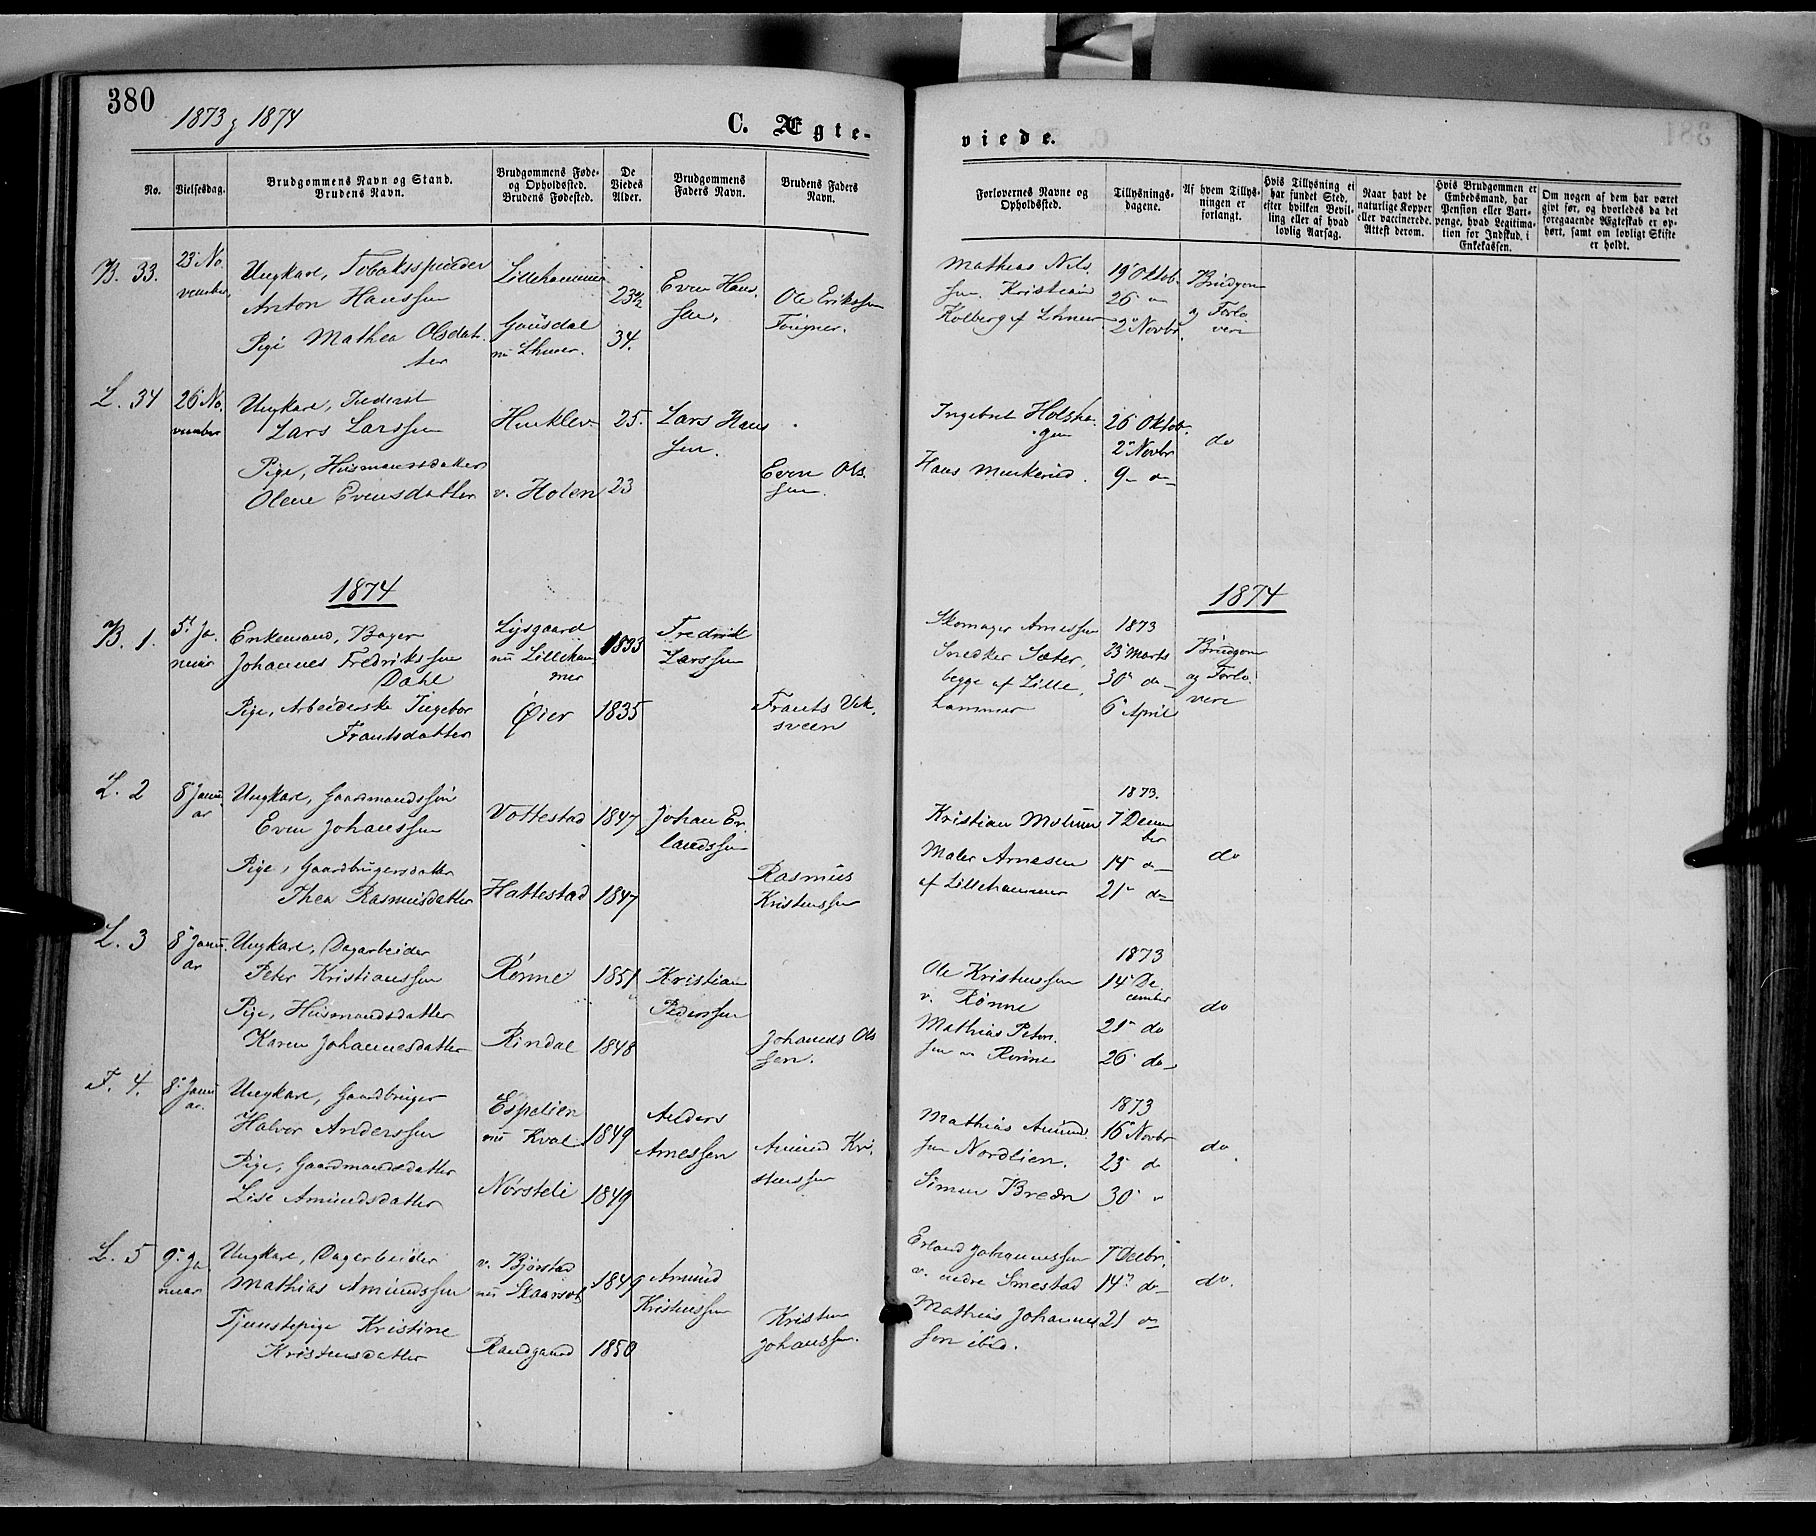 380
1873 g 1874
C. Ægte-
viede.
No.
Vielsesdag.
Brudgommens Navn og Stand.
Brudens Navn.
Brudgommens Føde-
og Opholdsted.
Brudens Fødested.
De
Viedes
Alder.
Brudgommens
Faders Navn.
Brudens Faders
Navn.
Forlovernes Navne og
Opholdsted.
Tillysnings-
dagene.
Af hvem Tillys-
ningen er
forlangt.
Hvis Tillysning ei
har fundet Sted,
efter hvilken Bevil-
ling eller af hvad
lovlig Aarsag.
Naar havt de
naturlige Kopper
eller vaccinerede.
Attest derom.
Hvis Brudgommen er
Embedsmand, har
Pension eller Vart-
penge, hvad Legitima-
tion for Indskud. i
Enkekassen.
Om nogen af dem har været
givt før, og hvorledes da det
foregaaende Ægteskab er op-
hørt, samt om lovligt Skifte
er holdt.
B. 33.
23 No
vember,
Ungkarl, Tobaksspinder
Anton Hanssen
Pige Mathea Olsdat
ter
Lillehammer
Gausdal
nu Lhmer.
23 1/2
34.
Even Hans
sen,
Ole Erikssen
Fougner.
Mathias Nils
sen. Kristian
Kolberg af Lhmer
19 Oktob.
26 "
2 Novbr.
Brudgom
og Forlo
vere
L. 34
26 No
vember
Ungkarl, Inderst
Lars Larssen
Pige, Husmannsdatter
Olene Evensdatter
v. Holen
25.
23
Lars Hans
sen.
Even Ols
sen.
Ingebret Holsha
gen
Hans
26 Oktob.
2 Novbr
9 do
do
1874
1874
B. 1.
5t Ja
nuar
Enkemand, Bager
Johannes Fredrikssen
Dahl
Pige, Arbeiderske Ingebor
Frantsdatter
Lysgaard
nu Lilleham
mer
Øier
1833
1835
Fredrik
Larssen
Frants Vik
sveen
Skomager Arnessen
Snedker Sæter,
begge af Lille
hammer
1873
23 Marts
30 do
6 April
Brudgom
og Forlo
vere
L. 2
8 Janu
ar
Ungkarl, Gaardmandssøn
Even Johanssen
Pige, Gaardbrugersdatter
Thea Rasmusdatter
Vottestad
Hattestad
1847
1847
Johan Er
landssen
Rasmus
Kristenssen
Kristian
Maler Arnesen
af Lillehammer
1873.
7 Decem
ber
14 do
21 do
do
L. 3
8 Janu
ar
Ungkarl, Dagarbeider
Peter Kristianssen
Pige, Husmandsdatter
Karen Johannesdatter
Rønne
Rindal
1851
1848
Kristian
Pederssen
Johannes Ols
sen.
Ole Kristenssen
v. Rønne
Mathias Peters
sen v. Rønne
1873
14 De
cember
21 do
26 do
do
F. 4.
8 Janu
ar.
Ungkarl, Gaardbruger
Halvor Anderssen
Pige, Gaardmandsdatter
Lise Amundsdatter
Espelien
nu Kval
Nørsteli
1849
1849
Anders
Arnessen
Amund Kri
stenssen
Mathias Amund
sen Nordlien.
Simen Breden
1873
16 Novbr
23 do
30 "
do.
L. 5
9 Ja
nuar
Ungkarl, Dagarbeider
Mathias Amundssen
Tjenstepige Kristine
Kristensdatter
v. Bjørstad
Randgaard
1849
1850
Amund
Kristenssen
Kristen
Johanssen.
Erland Johannssen
v. nedre Smestad
Mathias Johannes
sen ibid.
7 Decbr.
14 do
21 do
do.